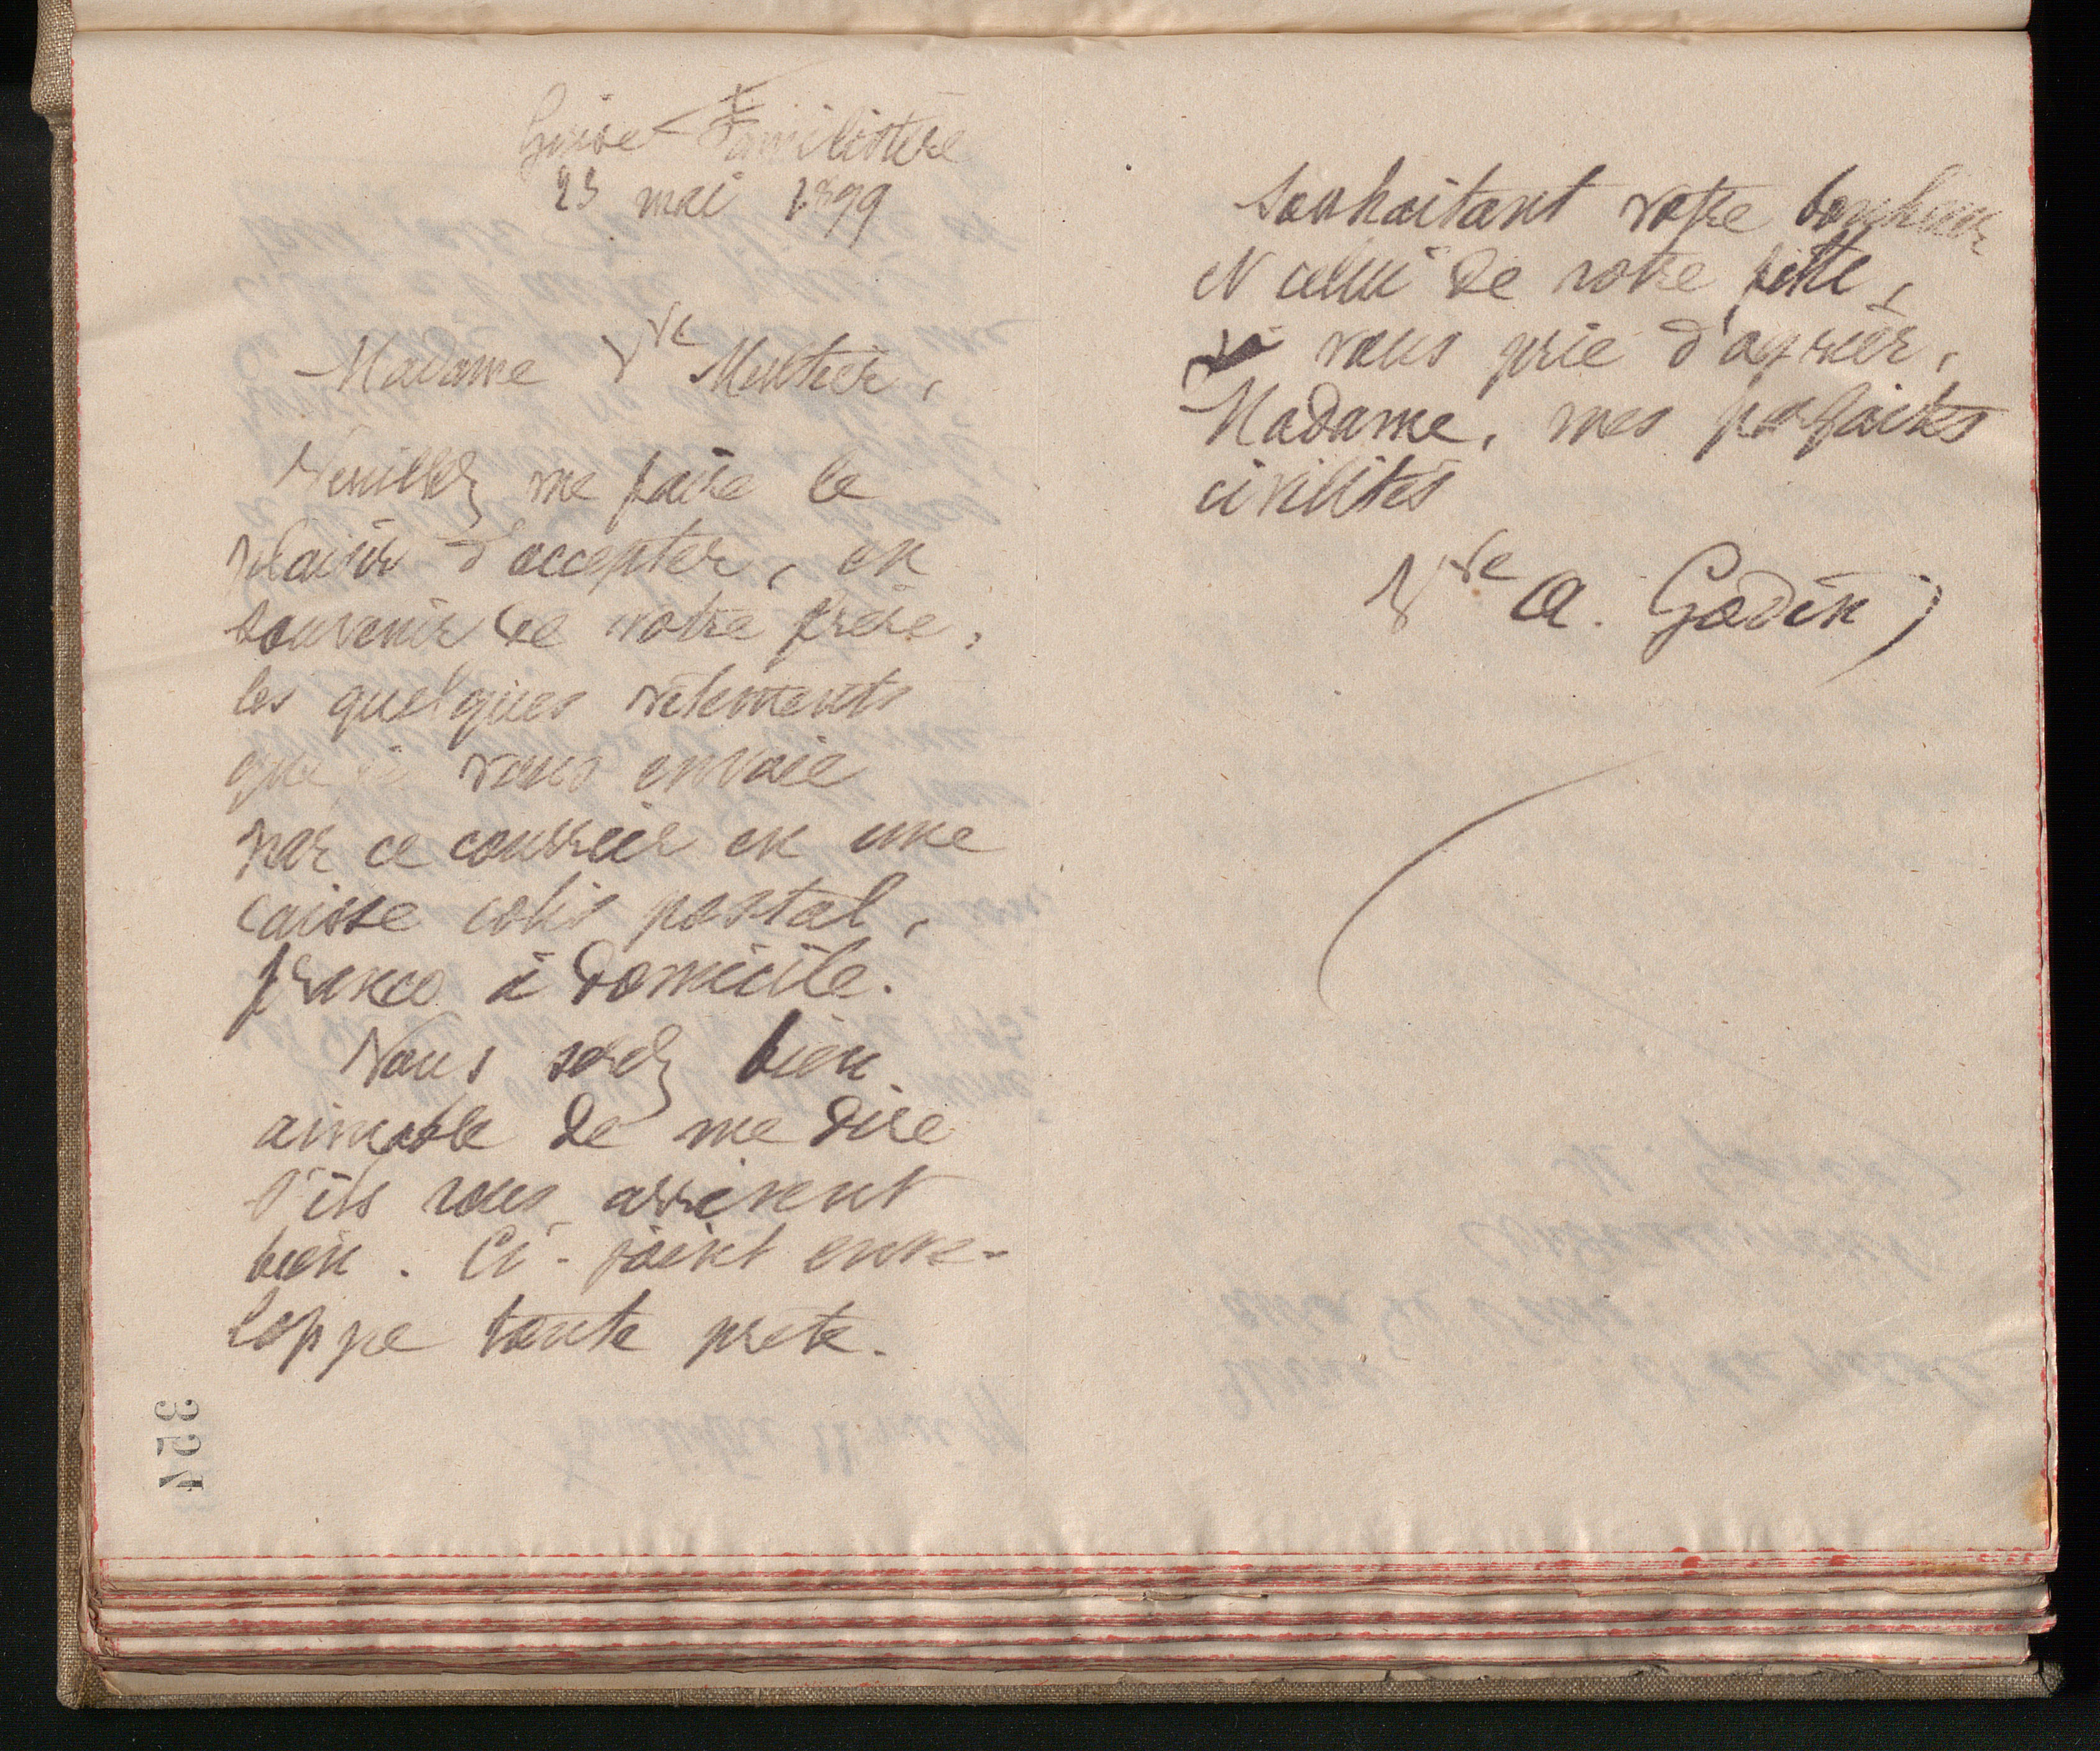 Guise-Familistère
23 mai 1899
Madame Vve
Veuillez me faire le
plaisir d'accepter, en
souvenir de votre frère,
les quelques vêtements
que je vous envoie
par ce courrier en une
caisse colis postal,
franco à domicile.
Vous serez bien
aimable de me dire
s'ils vous arrivent
bien. Ci-joint enve-
loppe toute prête.
354
Souhaitant votre bonheur
et celui de votre fille,
je vous prie d'agréer,
Madame, mes parfaites
civilités
Vve A. Godin